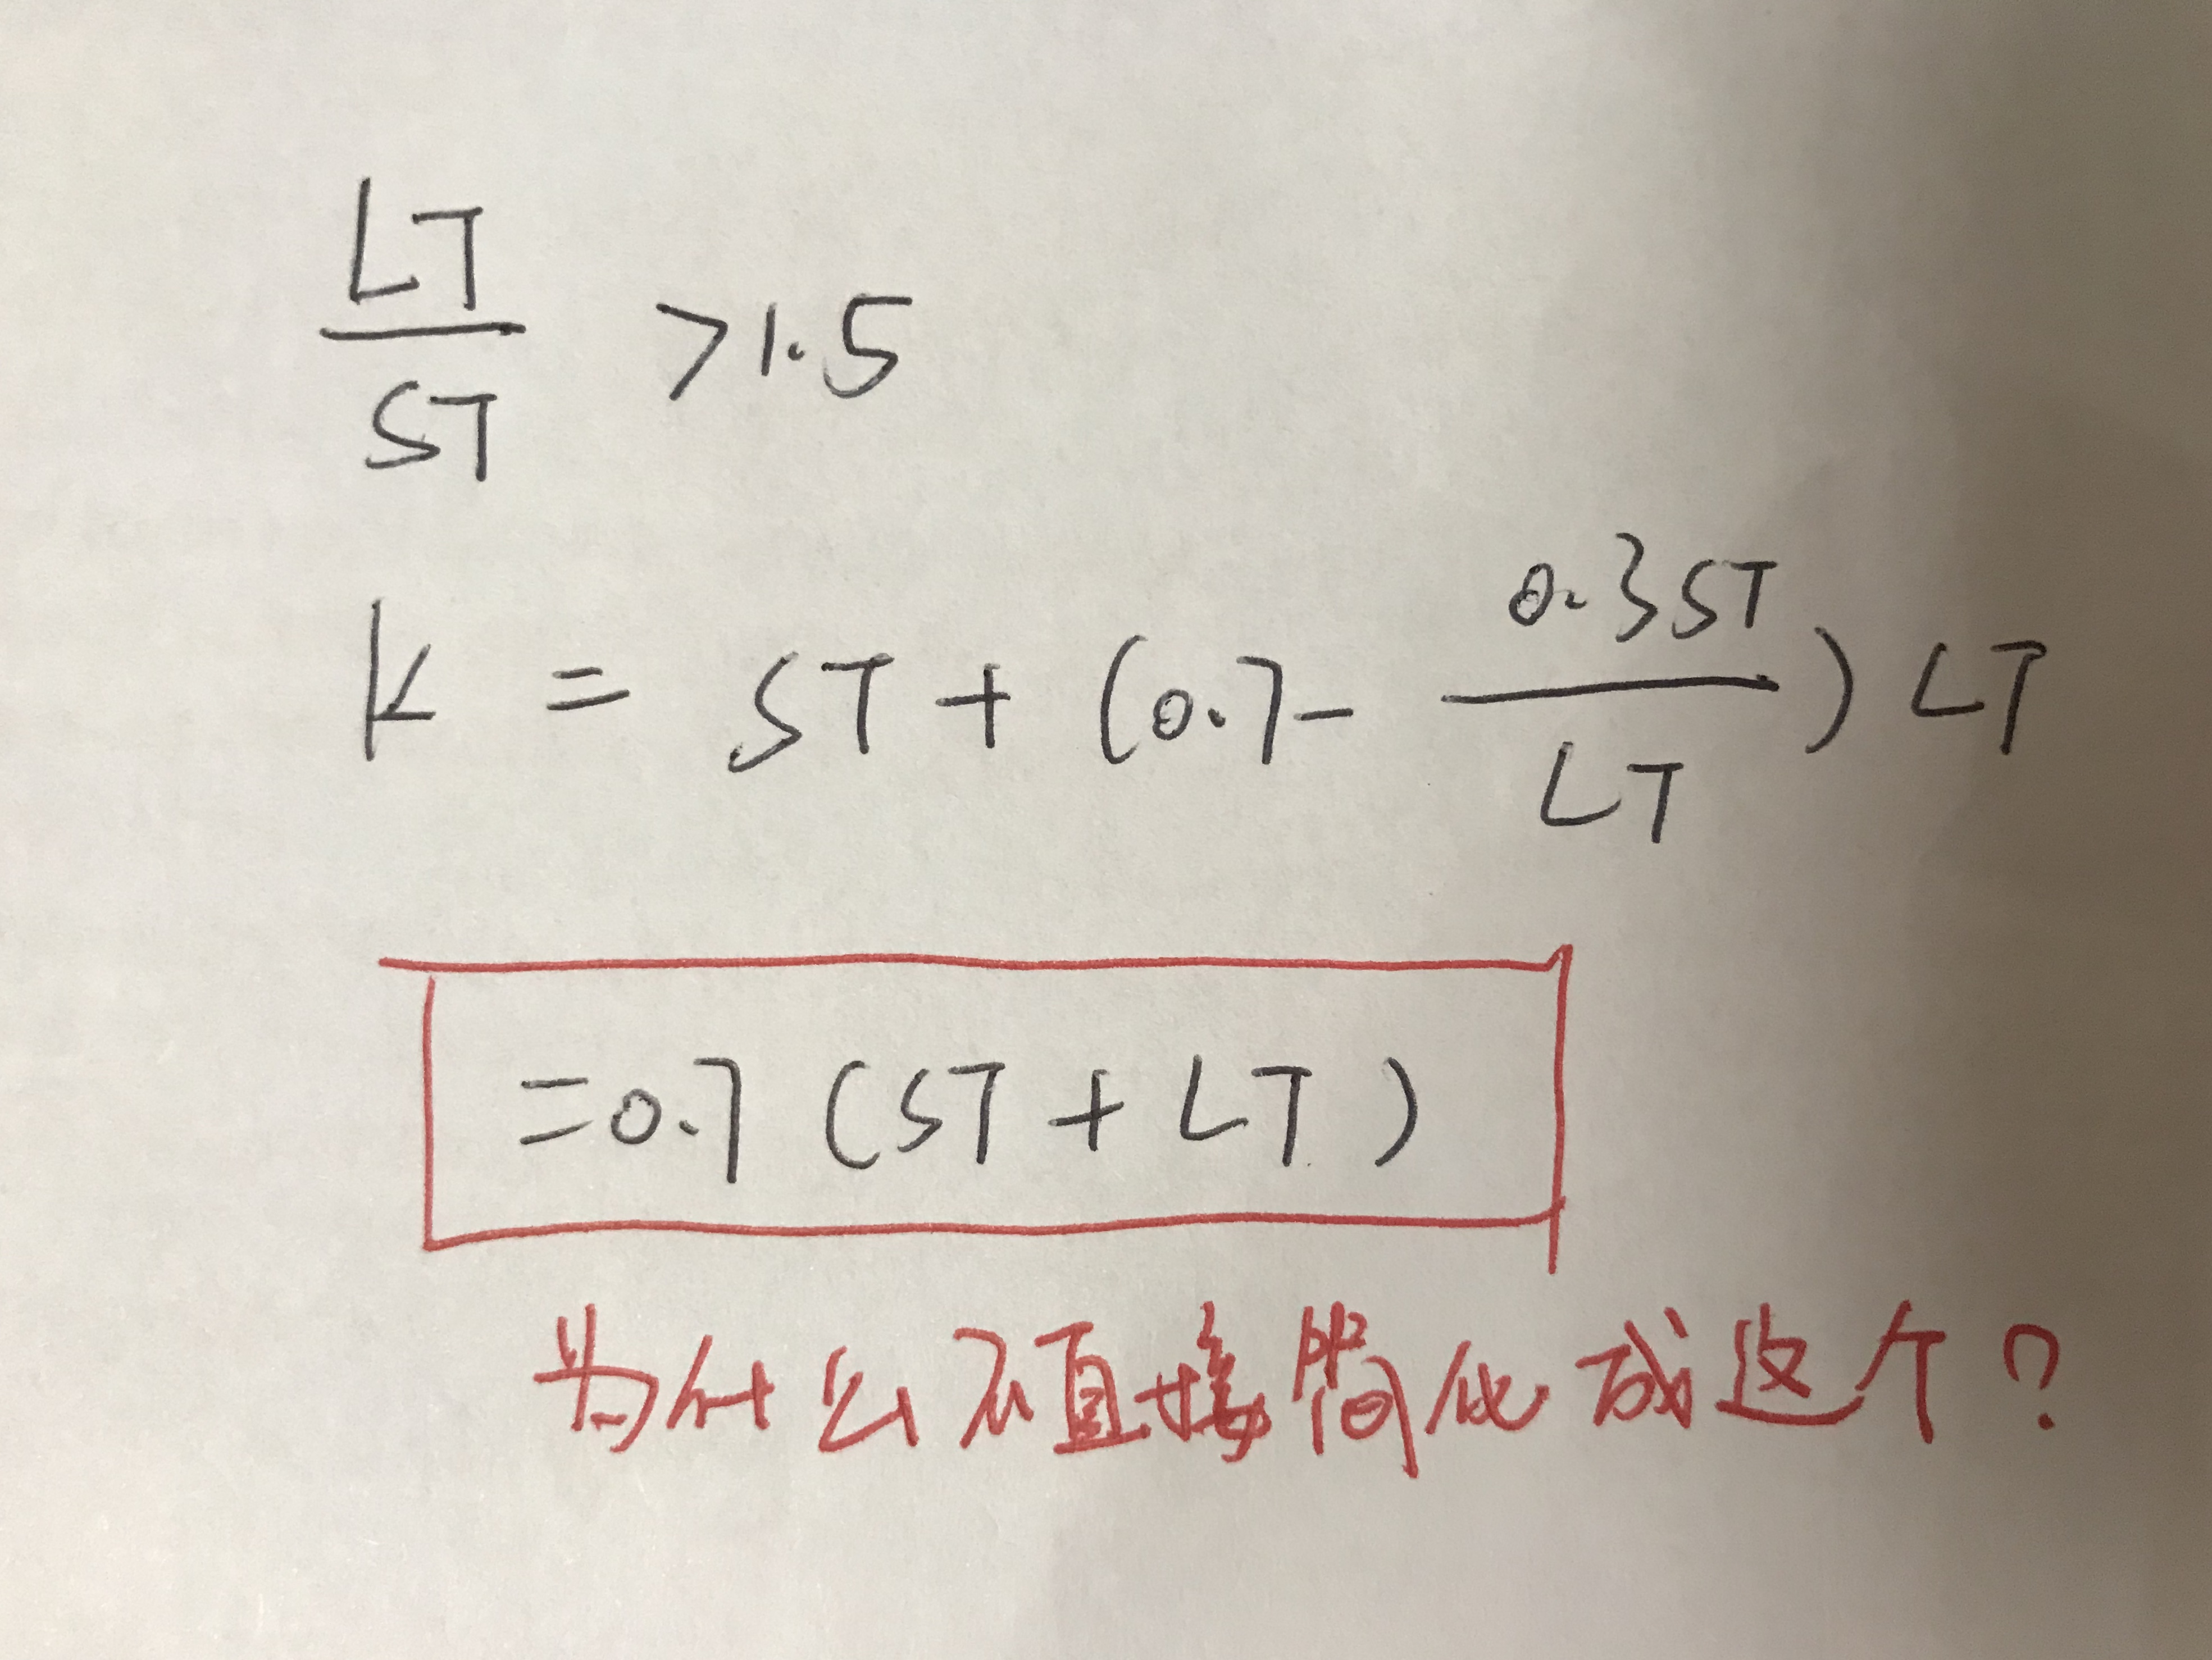 LT/ST >1.5
K = ST + (0.7 - 0.3ST/LT) LT
=0.7 (ST + LT)
为什么不直接简化成这个?